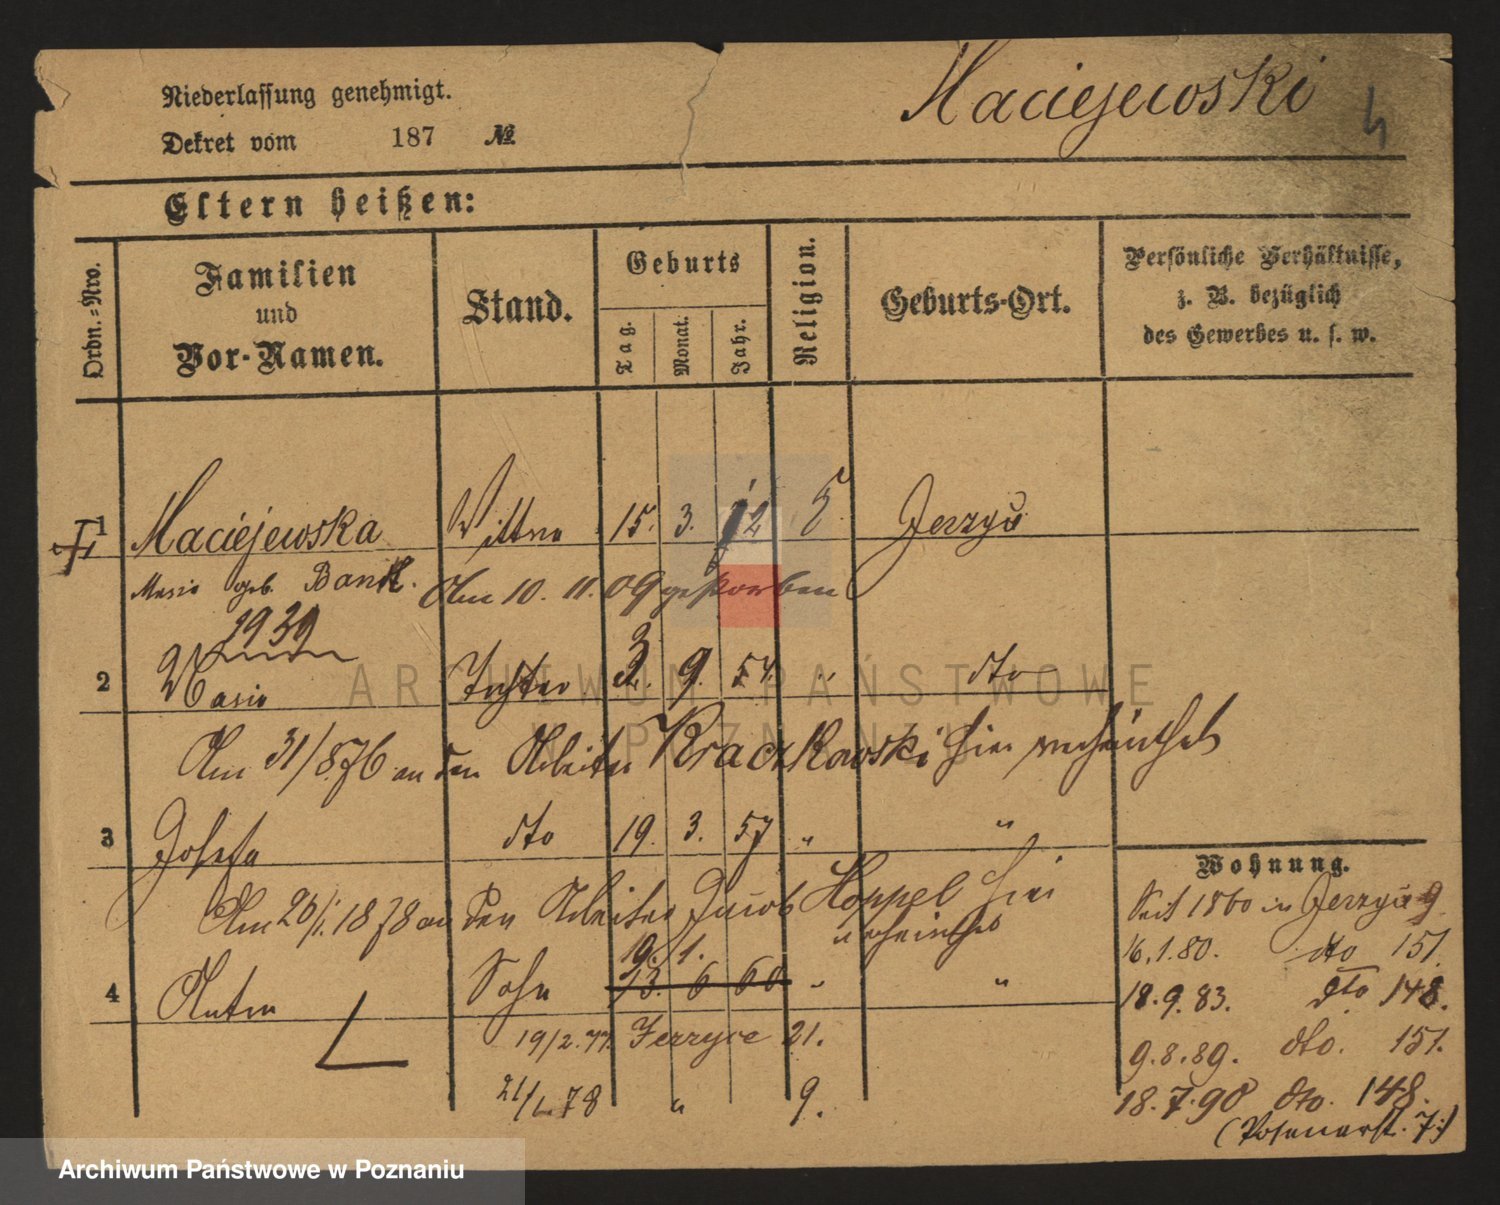 Niederlassung genehmigt.
Dekret vom 187 №
Maciejewski
4
Eltern heißen:
Ordn.-Nro.
Familien
und
Vor-Namen.
Stand.
Geburts
Tag.
Monat.
Jahr.
Religion.
Geburts-Ort.
Persönliche Verhältnisse,
z. B. bezüglich
des Gewerbes u. s. w.
1 Maciejewska Wittwe 15. 3. Jerzyce
Maria geb. Bank. Am 10. 11. 09 gestorben
1939
2 Maria Tochter 9. 54. " dto
Am 31/8.76 an den Arbeiter Kraczkowski hier verheirathet
3 Josefa dto 19. 3. 57 " "
Am 20/1. 1878 an den Arbeiter Jacob Hoppel hier
verheirathet
19. 1.
4 Anton Sohn 13. 6 60 " "
19/2. 77. Jerzyce 21.
21/1. 78 " 9.
Wohnung.
Seit 1860 in Jerzyce 9
16.1.80. dto 151.
18.9.83. dto 148.
9.8.89. dto. 151.
18.7.90 dto. 148.
(Posenerst. 7.)
ARCHIWUM PAŃSTWOWE
W POZNANIU
Archiwum Państwowe w Poznaniu